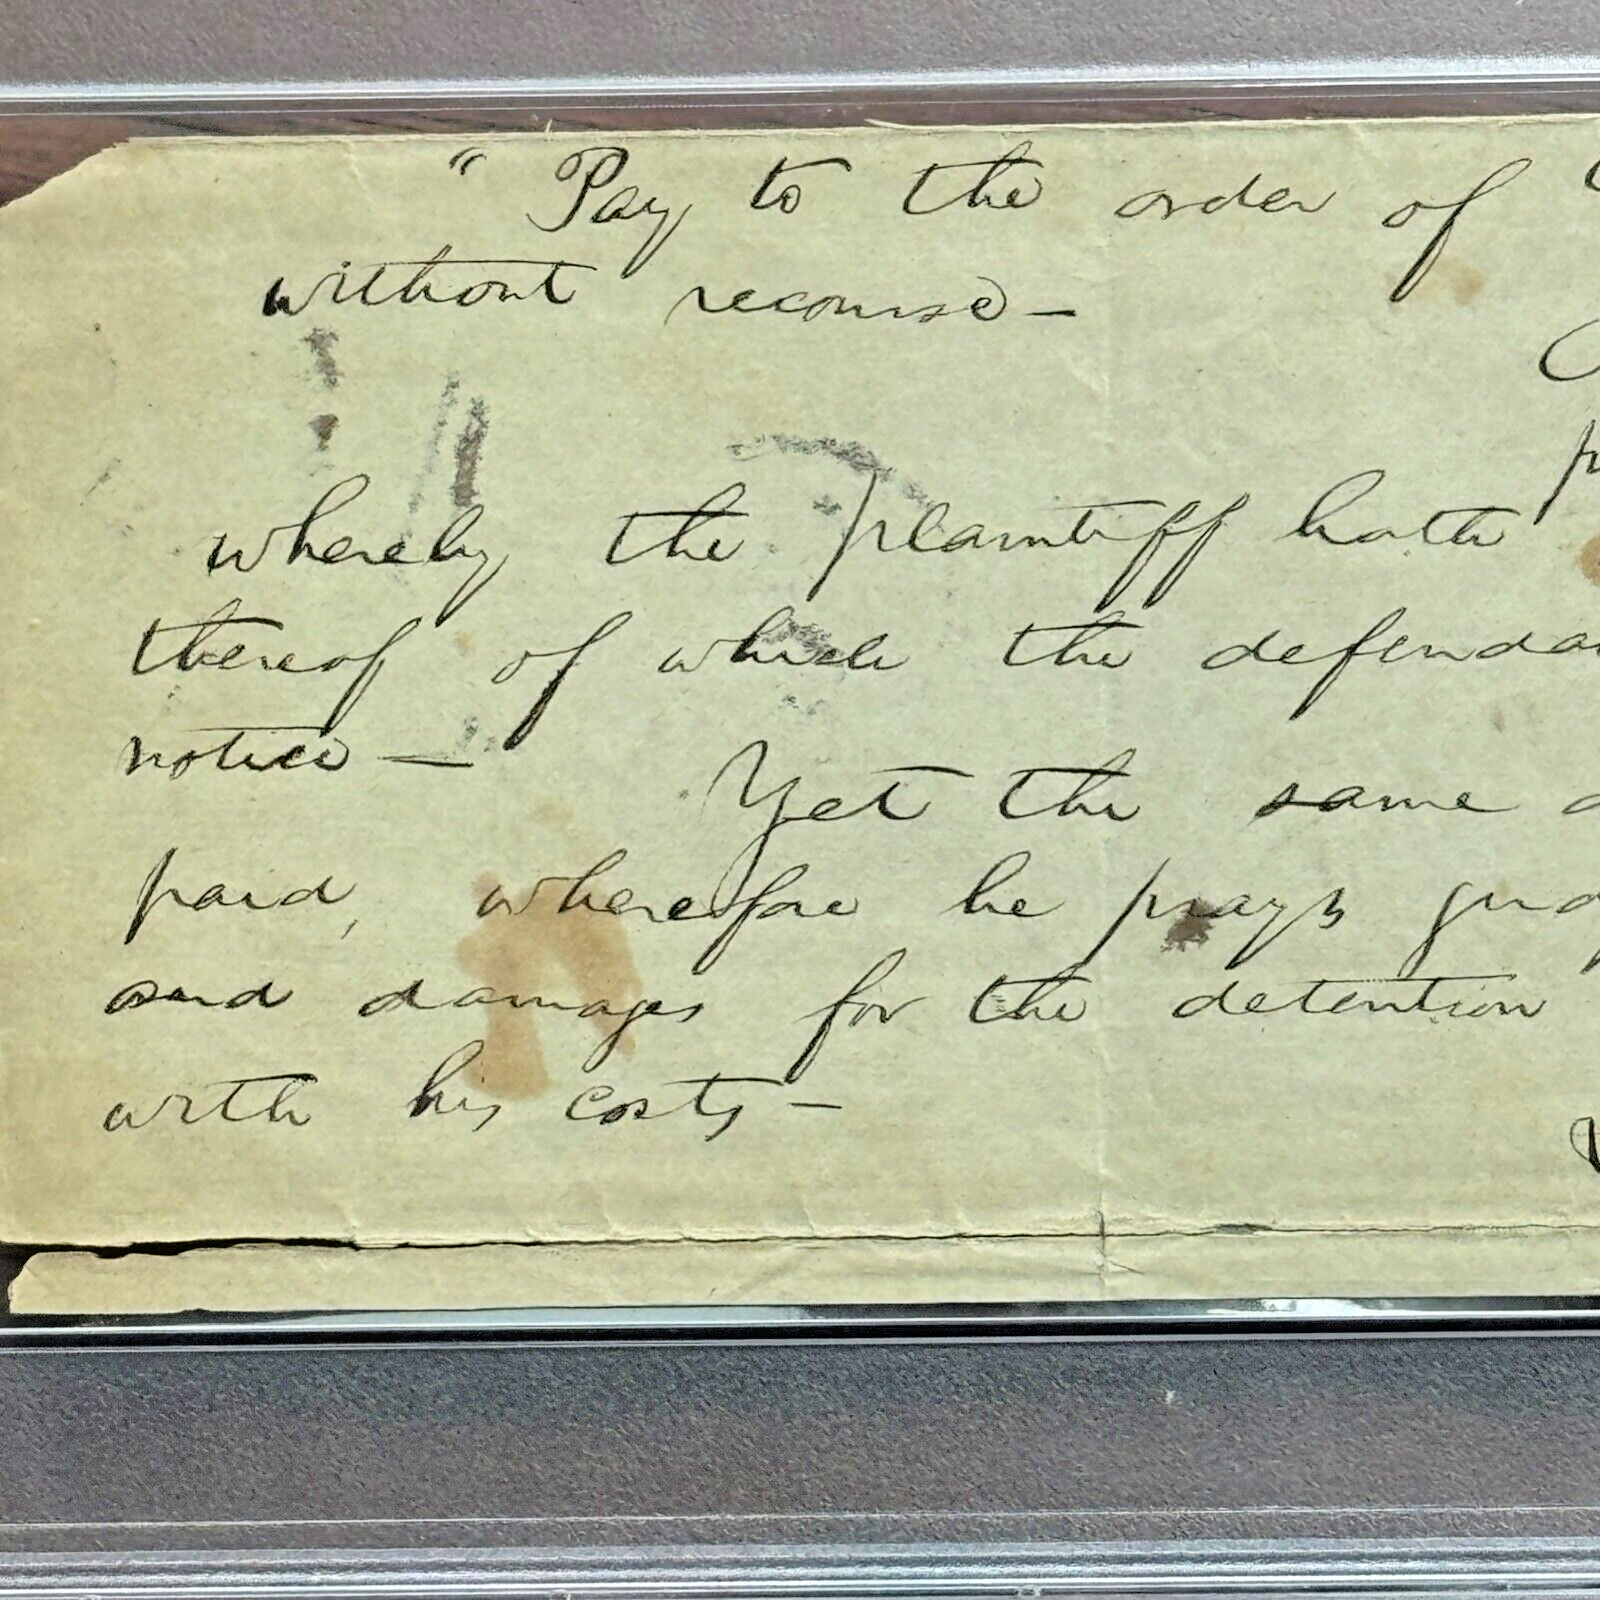 "Pay to the order of
without recourse —
whereby the plaintiff hath
thereof of which the defenda
notice — Yet the same
paid, wherefore he prays judg
and damages for the detention
with his costs —